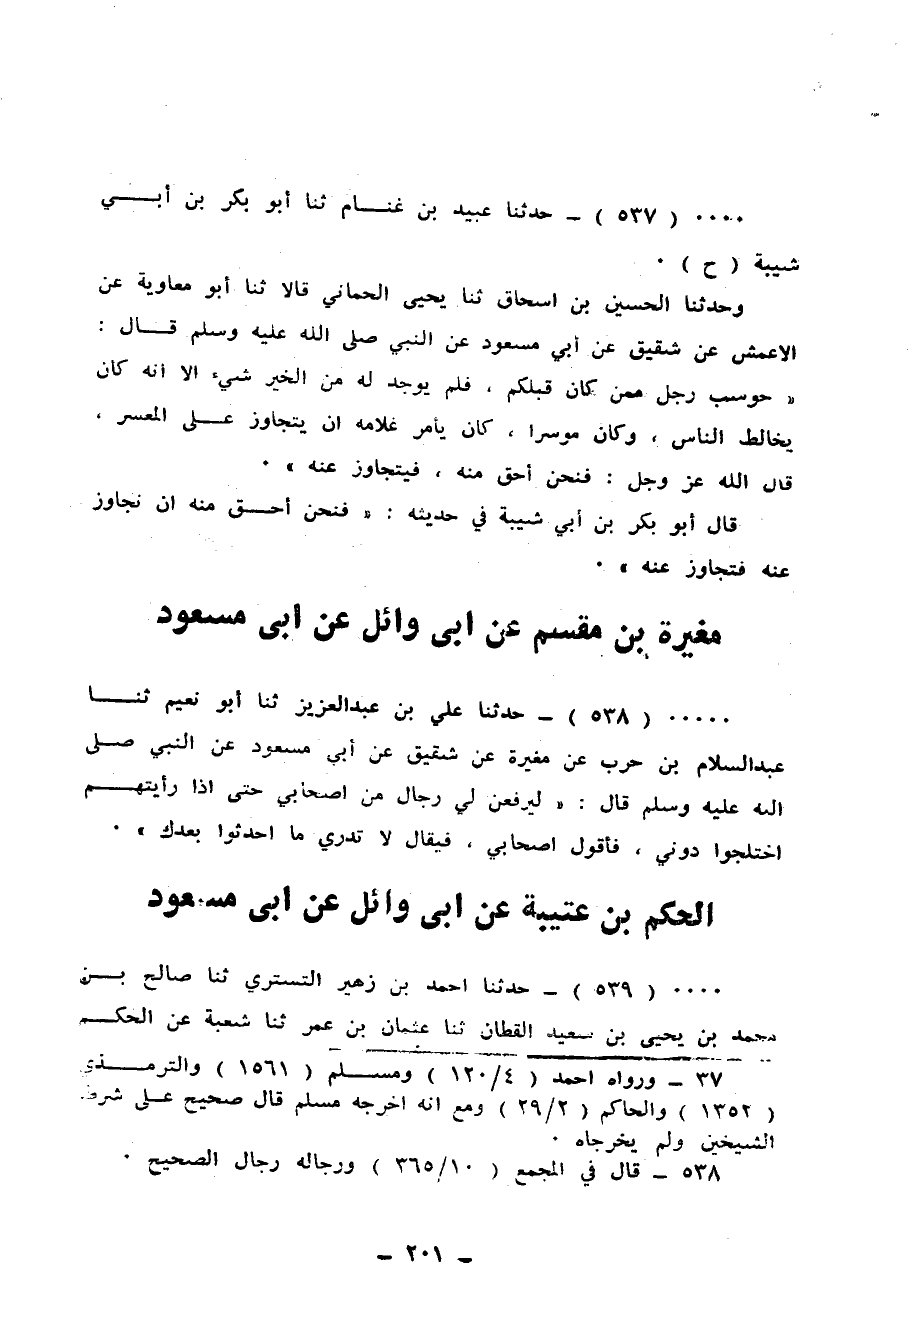 ٠٠٠٠ ( ٥٣٧ ) ـ حدثنا عبيد بن غنـــام ثنا أبو بكر بن أبـــي
شيبة ( ح ) ٠
وحدثنا الحسين بن اسحاق ثنا يحيى الحماني قالا ثنا أبو معاوية عن
الاعمش عن شقيق عن أبي مسعود عن النبي صلى الله عليه وسلم قـــال :
« حوسب رجل ممن كان قبلكم ، فلم يوجد له من الخير شيء الا أنه كان
يخالط الناس ، وكان موسرا ، كان يأمر غلامه ان يتجاوز عـــلى المعسر ،
قال الله عز وجل : فنحن أحق منه ، فيتجاوز عنه » ٠
قال أبو بكر بن أبي شيبة في حديثه : « فنحن أحـــق منه ان نجاوز
عنه فتجاوز عنه » ٠
مغيرة بن مقسم عن ابى وائل عن ابى مسعود
٠٠٠٠٠ ( ٥٣٨ ) ـ حدثنا علي بن عبدالعزيز ثنا أبو نعيم ثنـــا
عبدالسلام بن حرب عن مغيرة عن شقيق عن أبي مسعود عن النبي صـــلى
الله عليه وسلم قال : « ليرفعن لي رجال من اصحابي حتى اذا رأيتهـــم
اختلجوا دوني ، فأقول اصحابي ، فيقال لا تدري ما احدثوا بعدك » ٠
الحكم بن عتيبة عن ابى وائل عن ابى مسعود
٠٠٠٠ ( ٥٣٩ ) ـ حدثنا احمد بن زهير التستري ثنا صالح بـــن
محمد بن يحيى بن سعيد القطان ثنا عثمان بن عمر ثنا شعبة عن الحكـــم
٣٧ ـ ورواه احمد ( ١٢٠/٤ ) ومســـلم ( ١٥٦١ ) والترمـــذي
( ١٣٥٢ ) والحاكم ( ٢٩/٢ ) ومع انه اخرجه مسلم قال صحيح عـــلى شرط
الشيخين ولم يخرجاه ٠
٥٣٨ ـ قال في المجمع ( ٣٦٥/١٠ ) ورجاله رجال الصحيح ٠
ـ ٢٠١ ـ